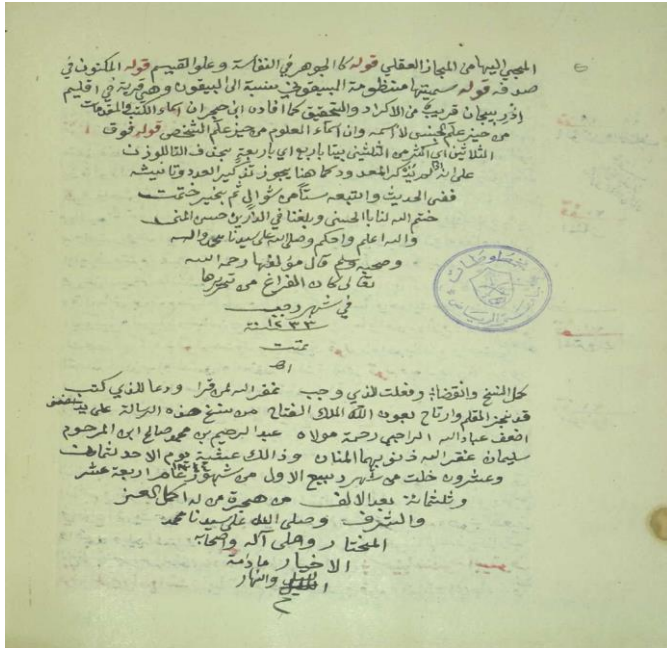 المجبي اليها من المجاز العقلي قوله كالجوهر في النفاسة وعلو القيم قوله المكنون في
صدفه قوله سميتها منظومة البيقوني نسبة الى البيقون وهي قرية في اقليم
اذربيجان قريب من الاكراد والتحقيق كما افاده ابن حجر ان اسماء الكتب والمقدمات
من حيز علم الجنس لا اسمه وان اسماء العلوم من حيز علم الشخص قوله فوق
الثلاثين اي اكثر من الثلثين بيتا باربع اي باربعة بحذف التا للوزن
على انه المعدود كما هنا يجوز تذكير العدد وتانيثه
ففي الحديث واتبعه ستا من شوال ثم بخير ختمت
ختم الله لنا بالحسنى وبلغنا في الدارين حسن المنى
والله اعلم واحكم وصلى الله على سيدنا محمد واله
وصحبه وسلم قال مؤلفها رحمه الله
تعالى كان الفراغ من تحريرها
في شهر رجب
١٢٣٣ سنة
تمت
اهـ
كمل النسخ وانقضا وفعلت للذي وجب غفر الله لمن قرا ودعا للذي كتب
قد نجز القلم وارتاح بعون الله الملك الفتاح من نسخ هذه الرسالة على يد
اضعف عباد الله الراجي رحمة مولاه عبد الرحيم بن محمد صالح ابن المرحوم
سليمان غفر الله ذنوبهما المنان وذالك عشية يوم الاحد لثمان
وعشرون خلت من شهر ربيع الاول من شهور عام اربعة عشر
وثلثمائة بعد الالف من هجرة من له اكمل العز
والشرف وصلى الله على سيدنا محمد
المختار وعلى آله واصحابه
الاخيار ما دامة
الليل والنهار
م